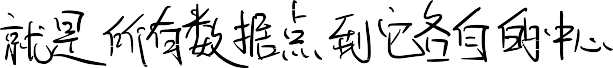 就是所有数据点到它各自的中心